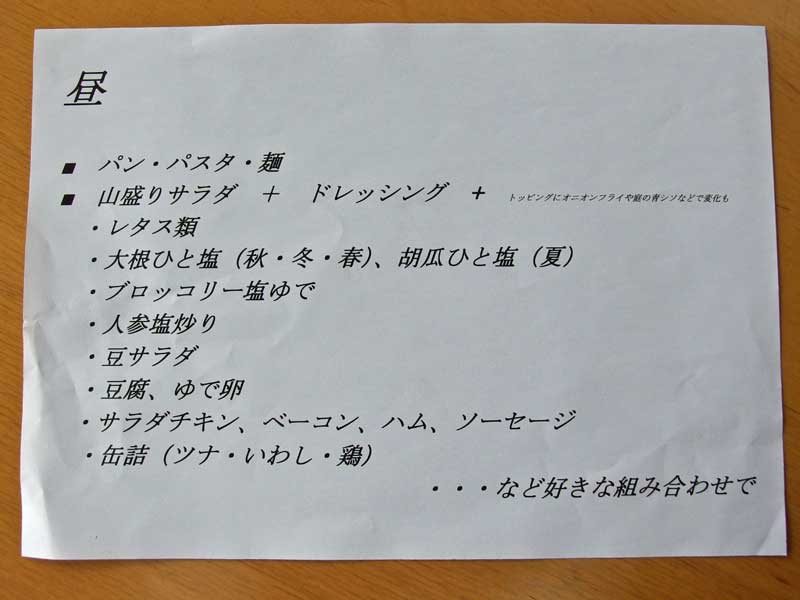 昼
■ パン・パスタ・麺
■ 山盛りサラダ ＋ ドレッシング ＋ トッピングにオニオンフライや庭の青シソなどで変化も
・レタス類
・大根ひと塩（秋・冬・春）、胡瓜ひと塩（夏）
・ブロッコリー塩ゆで
・人参塩炒り
・豆サラダ
・豆腐、ゆで卵
・サラダチキン、ベーコン、ハム、ソーセージ
・缶詰（ツナ・いわし・鶏）
・・・など好きな組み合わせで